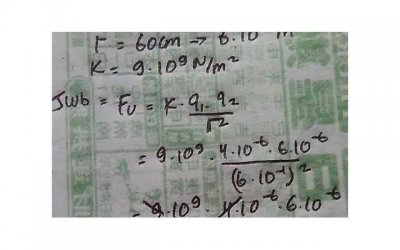 r = 60cm → 6.10 m
K = 9.10⁹ N/m²
Jwb = Fv = K . q₁. q₂ / r²
= 9.10⁹ . 4.10⁻⁶ . 6.10⁻⁶ / (6.10⁻¹)²
= 9.10⁹ . 4.10⁻⁶ . 6.10⁻⁶